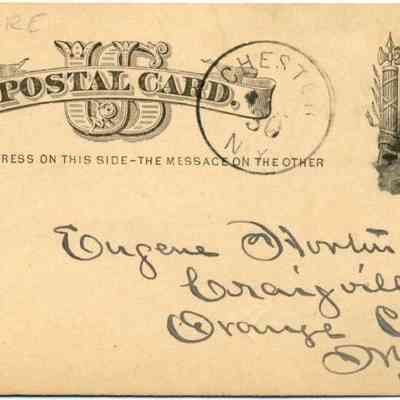 RE
US
POSTAL CARD.
CHESTER
30
N.Y.
RESS ON THIS SIDE—THE MESSAGE ON THE OTHER
Eugene
Craigvill
Orange C